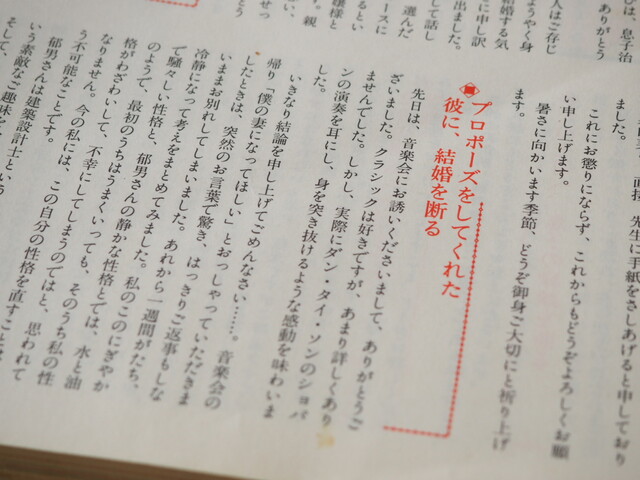 先生に手紙をさしあげると申しており
ました。
これにお懲りにならず、これからもどうぞよろしくお願
い申し上げます。
暑さに向かいます季節、どうぞ御身ご大切にと祈り上げ
ます。
プロポーズをしてくれた
彼に、結婚を断る
先日は、音楽会にお誘いくださいまして、ありがとうご
ざいました。クラシックは好きですが、あまり詳しくあり
ませんでした。しかし、実際にダン・タイ・ソンのショパ
ンの演奏を耳にし、身を突き抜けるような感動を味わいま
した。
いきなり結論を申し上げてごめんなさい……。音楽会の
帰り「僕の妻になってほしい」とおっしゃっていただきま
したときは、突然のお言葉で驚き、はっきりご返事もしな
いままお別れしてしまいました。あれから一週間がたち、
冷静になって考えをまとめてみました。私のこのにぎやか
で騒々しい性格と、郁男さんの静かな性格とでは、水と油
のようで、最初のうちはうまくいっても、そのうち私の性
格がわざわいして、不幸にしてしまうのではと、思われて
なりません。今の私には、この自分の性格を直すことは
う不可能なことです。
郁男さんは建築設計士とい
いう素敵なご趣味を
そして、
人はご存じ
ようやく身
結婚する気
に申し訳
出ました。
して話し
選んだ
るとい
ースに
嬢様と
親
せっ
息子治
ありがとう